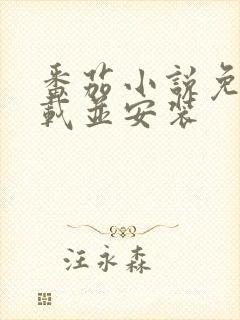 番茄小说免
载并安装
汪永森